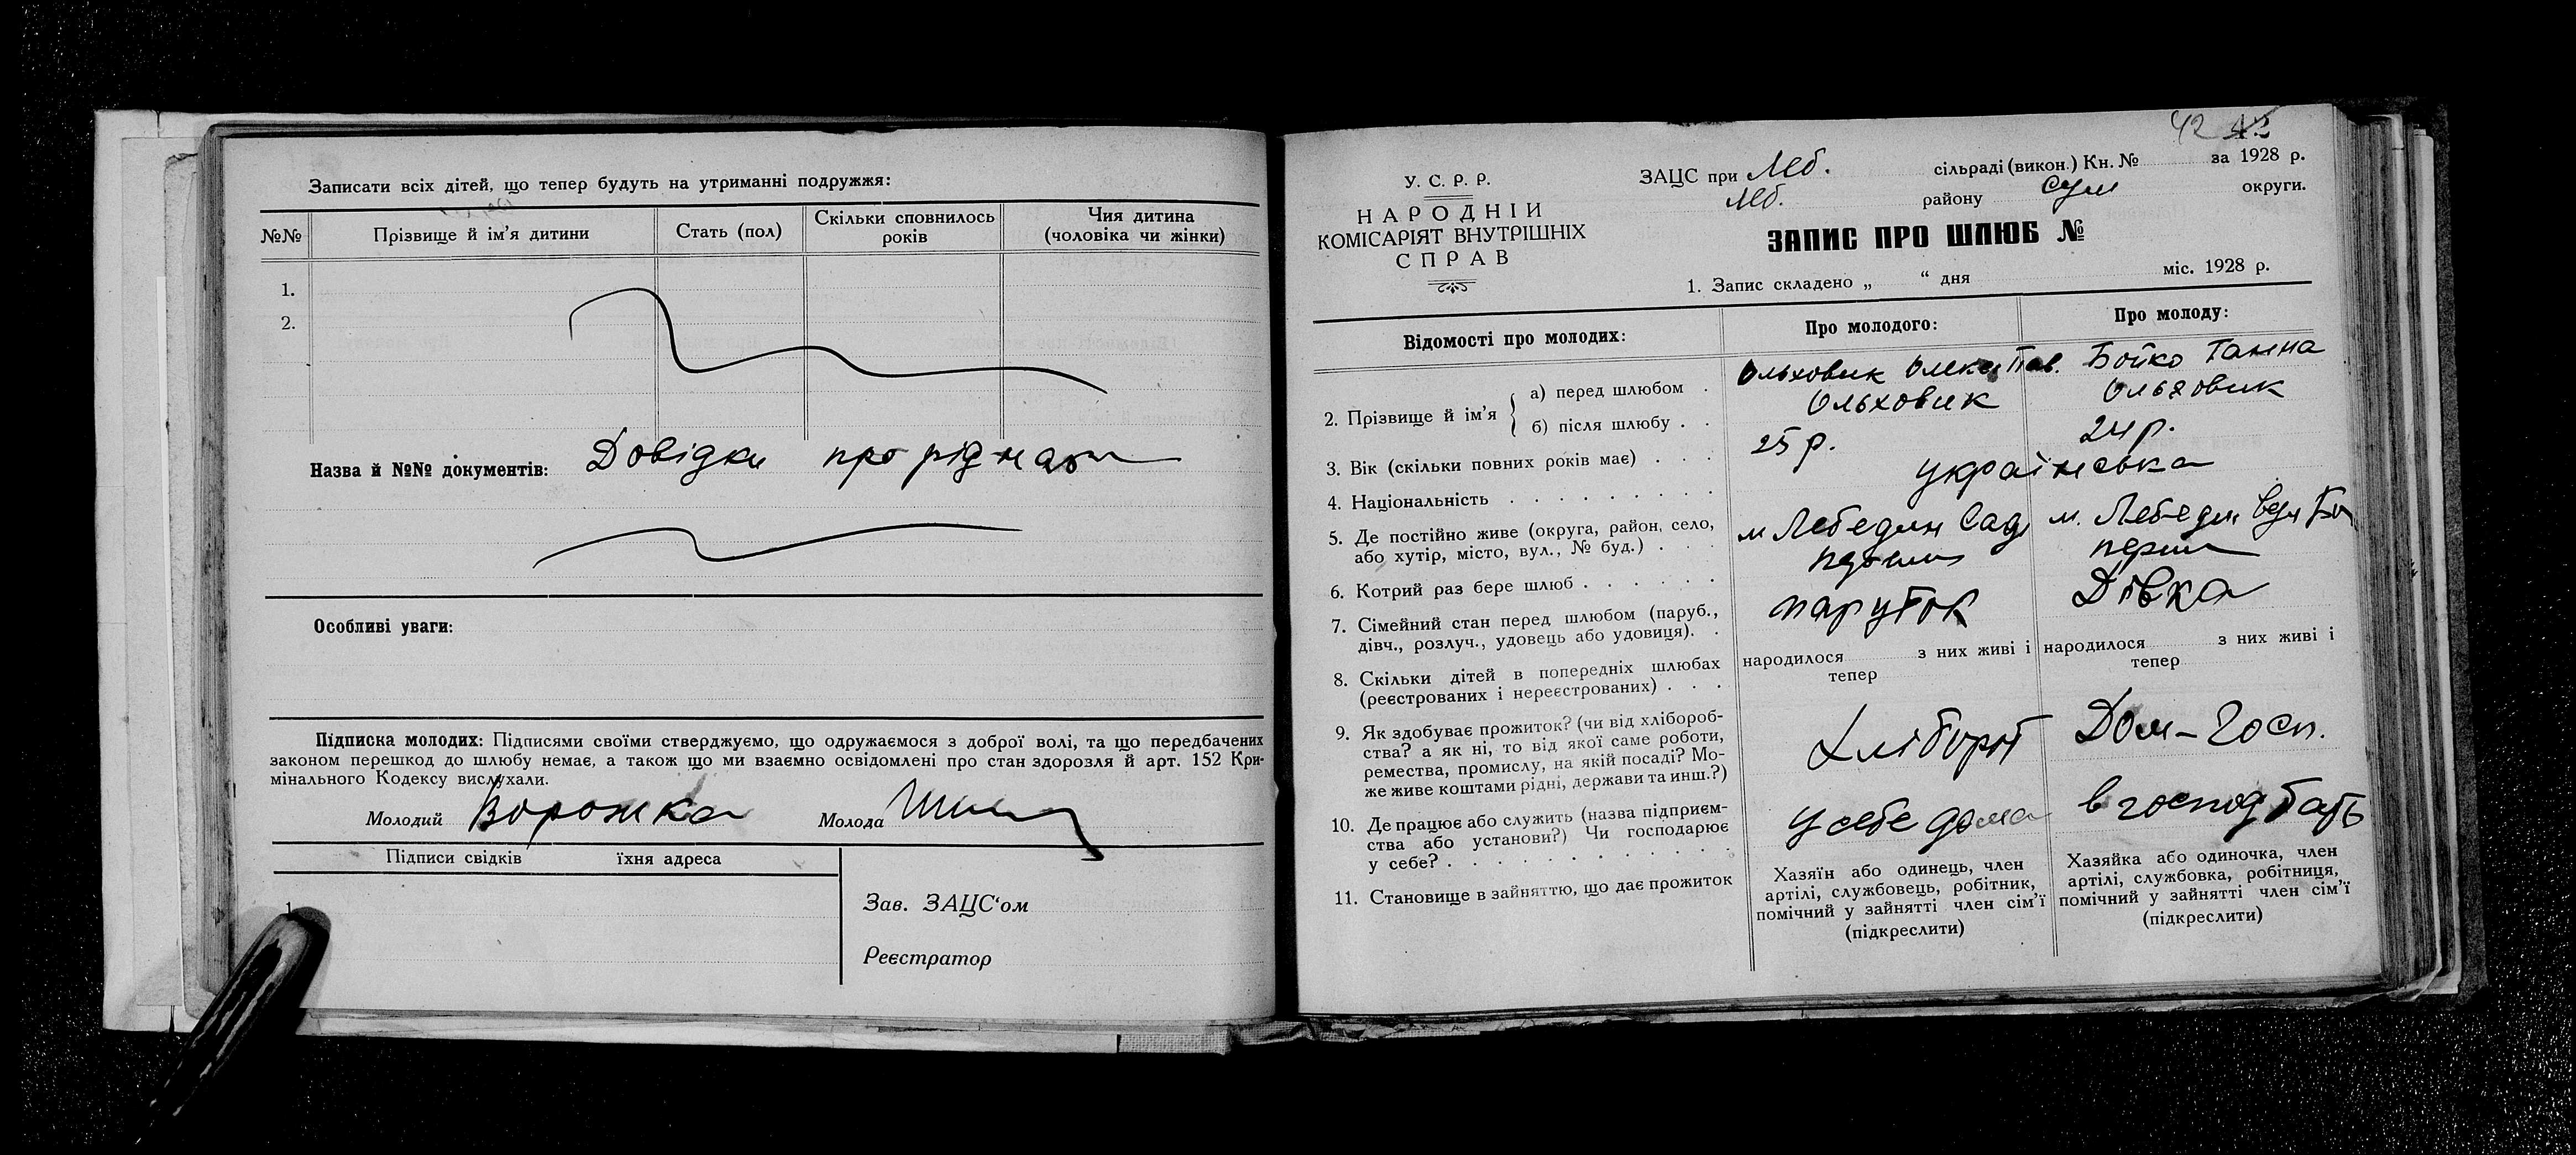 Записати всіх дітей, що тепер будуть на утриманні подружжя:
№№ Прізвище й ім'я дитини Стать (пол) Скільки сповнилось років Чия дитина (чоловіка чи жінки)
1.
2.
Назва й №№ документів: Довідки про
Особливі уваги:
Підписка молодих: Підписями своїми стверджуємо, що одружаємося з доброї волі, та що передбачених
законом перешкод до шлюбу немає, а також що ми взаємно освідомлені про стан здоровля й арт. 152 Кри-
мінального Кодексу вислухали.
Молодий Ворожка Молода
Підписи свідків їхня адреса
1
Зав. ЗАЦС'ом
Реєстратор
42 42
У. С. Р. Р.
НАРОДНІЙ
КОМІСАРІЯТ ВНУТРІШНІХ
СПРАВ
ЗАЦС при Леб. сільраді (викон.) Кн. № за 1928 р.
Леб. району Сум округи.
ЗАПИС ПРО ШЛЮБ №
1. Запис складено „ “ дня міс. 1928 р.
Відомості про молодих: Про молодого: Про молоду:
2. Прізвище й ім'я
а) перед шлюбом . Ольховик Олекс. Пав. Бойко Ганна
б) після шлюбу . . Ольховик Ольховик
3. Вік (скільки повних років має) . . . 25 р. 24 р.
4. Національність . . . . . . . . . українська
5. Де постійно живе (округа, район, село,
або хутір, місто, вул., № буд.) . . .
м Лебедин Сад м. Лебедин вул
6. Котрий раз бере шлюб . . . . . . перш
7. Сімейний стан перед шлюбом (паруб.,
дівч., розлуч., удовець або удовиця). .
парубок Дівка
8. Скільки дітей в попередніх шлюбах
(реєстрованих і нереєстрованих) . . .
народилося з них живі і
тепер
народилося з них живі і
тепер
9. Як здобуває прожиток? (чи від хлібороб-
ства? а як ні, то від якої саме роботи,
ремества, промислу, на якій посаді? Мо-
же живе коштами рідні, держави та инш.?)
хлібороб Дом-госп.
10. Де працює або служить (назва підприєм-
ства або установи?) Чи господарює
у себе? . . . . . . . . . . . .
у себе дома в господ бать
11. Становище в зайняттю, що дає прожиток
Хазяїн або одинець, член
артілі, службовець, робітник,
помічний у зайнятті член сім'ї
(підкреслити)
Хазяйка або одиночка, член
артілі, службовка, робітниця,
помічний у зайнятті член сім'ї
(підкреслити)